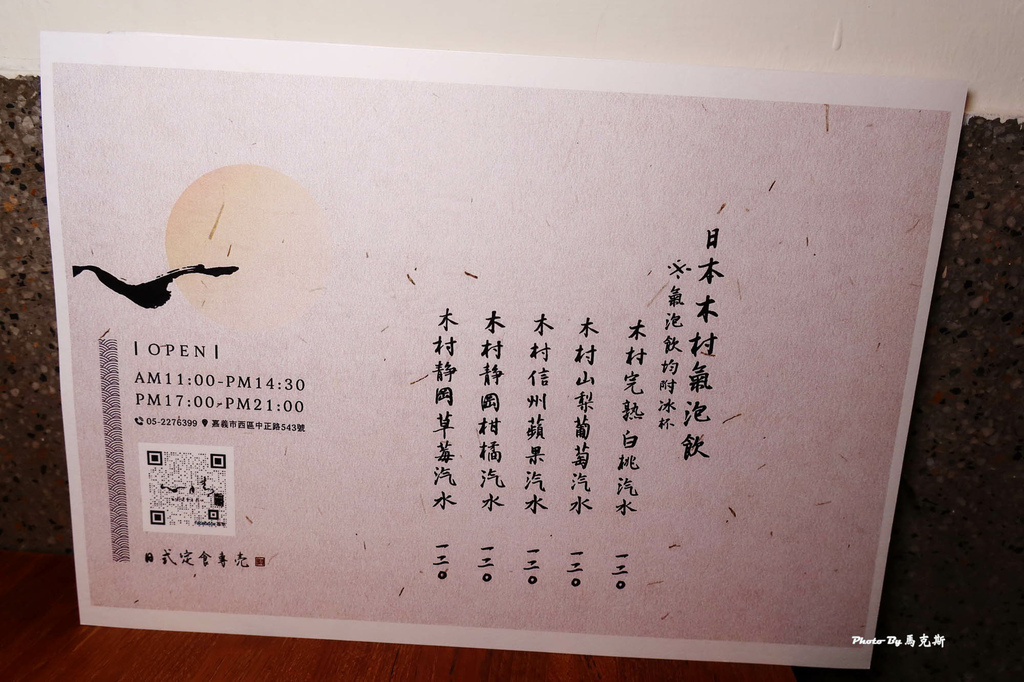 日本木村氣泡飲
※氣泡飲均附冰杯
木村完熟白桃汽水 一二〇
木村山梨葡萄汽水 一二〇
木村信州蘋果汽水 一二〇
木村靜岡柑橘汽水 一二〇
木村靜岡草莓汽水 一二〇
| OPEN |
AM11:00-PM14:30
PM17:00-PM21:00
05-2276399 嘉義市西區中正路543號
日式定食專売
Photo By 馬克斯